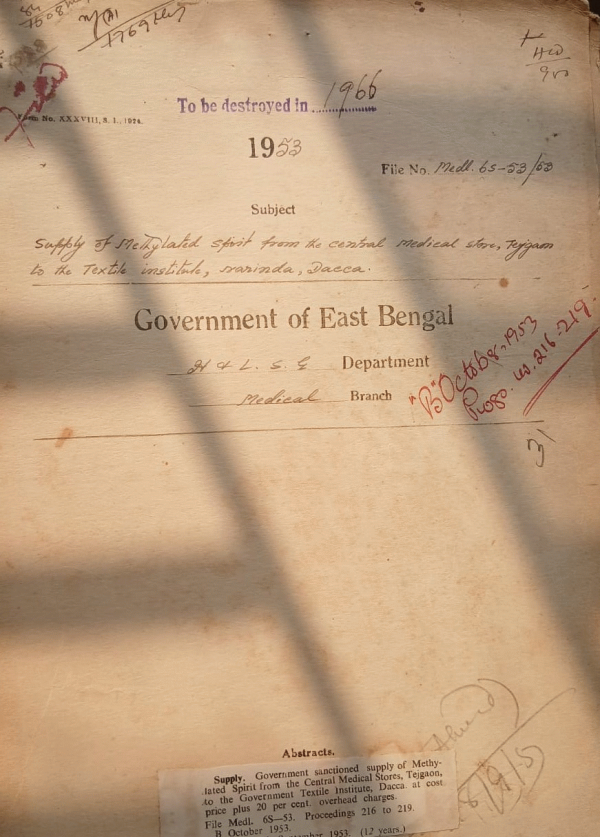 1508
1769
To be destroyed in 1966
Form No. XXXVIII, S. I., 1924.
1953
File No. Medl. 6S-53/53
Subject
Supply of Methylated spirit from the central medical store, Tejgaon
to the Textile institute, Narinda, Dacca.
Government of East Bengal
H & L. S. G Department
Medical Branch
"B" October, 1953
Progs. ns. 216-219.
Abstracts.
Supply. Government sanctioned supply of Methy-
lated Spirit from the Central Medical Stores, Tejgaon,
to the Government Textile Institute, Dacca. at cost
price plus 20 per cent. overhead charges.
File Medl. 6S—53. Proceedings 216 to 219.
B October 1953.
1953. (12 years.)